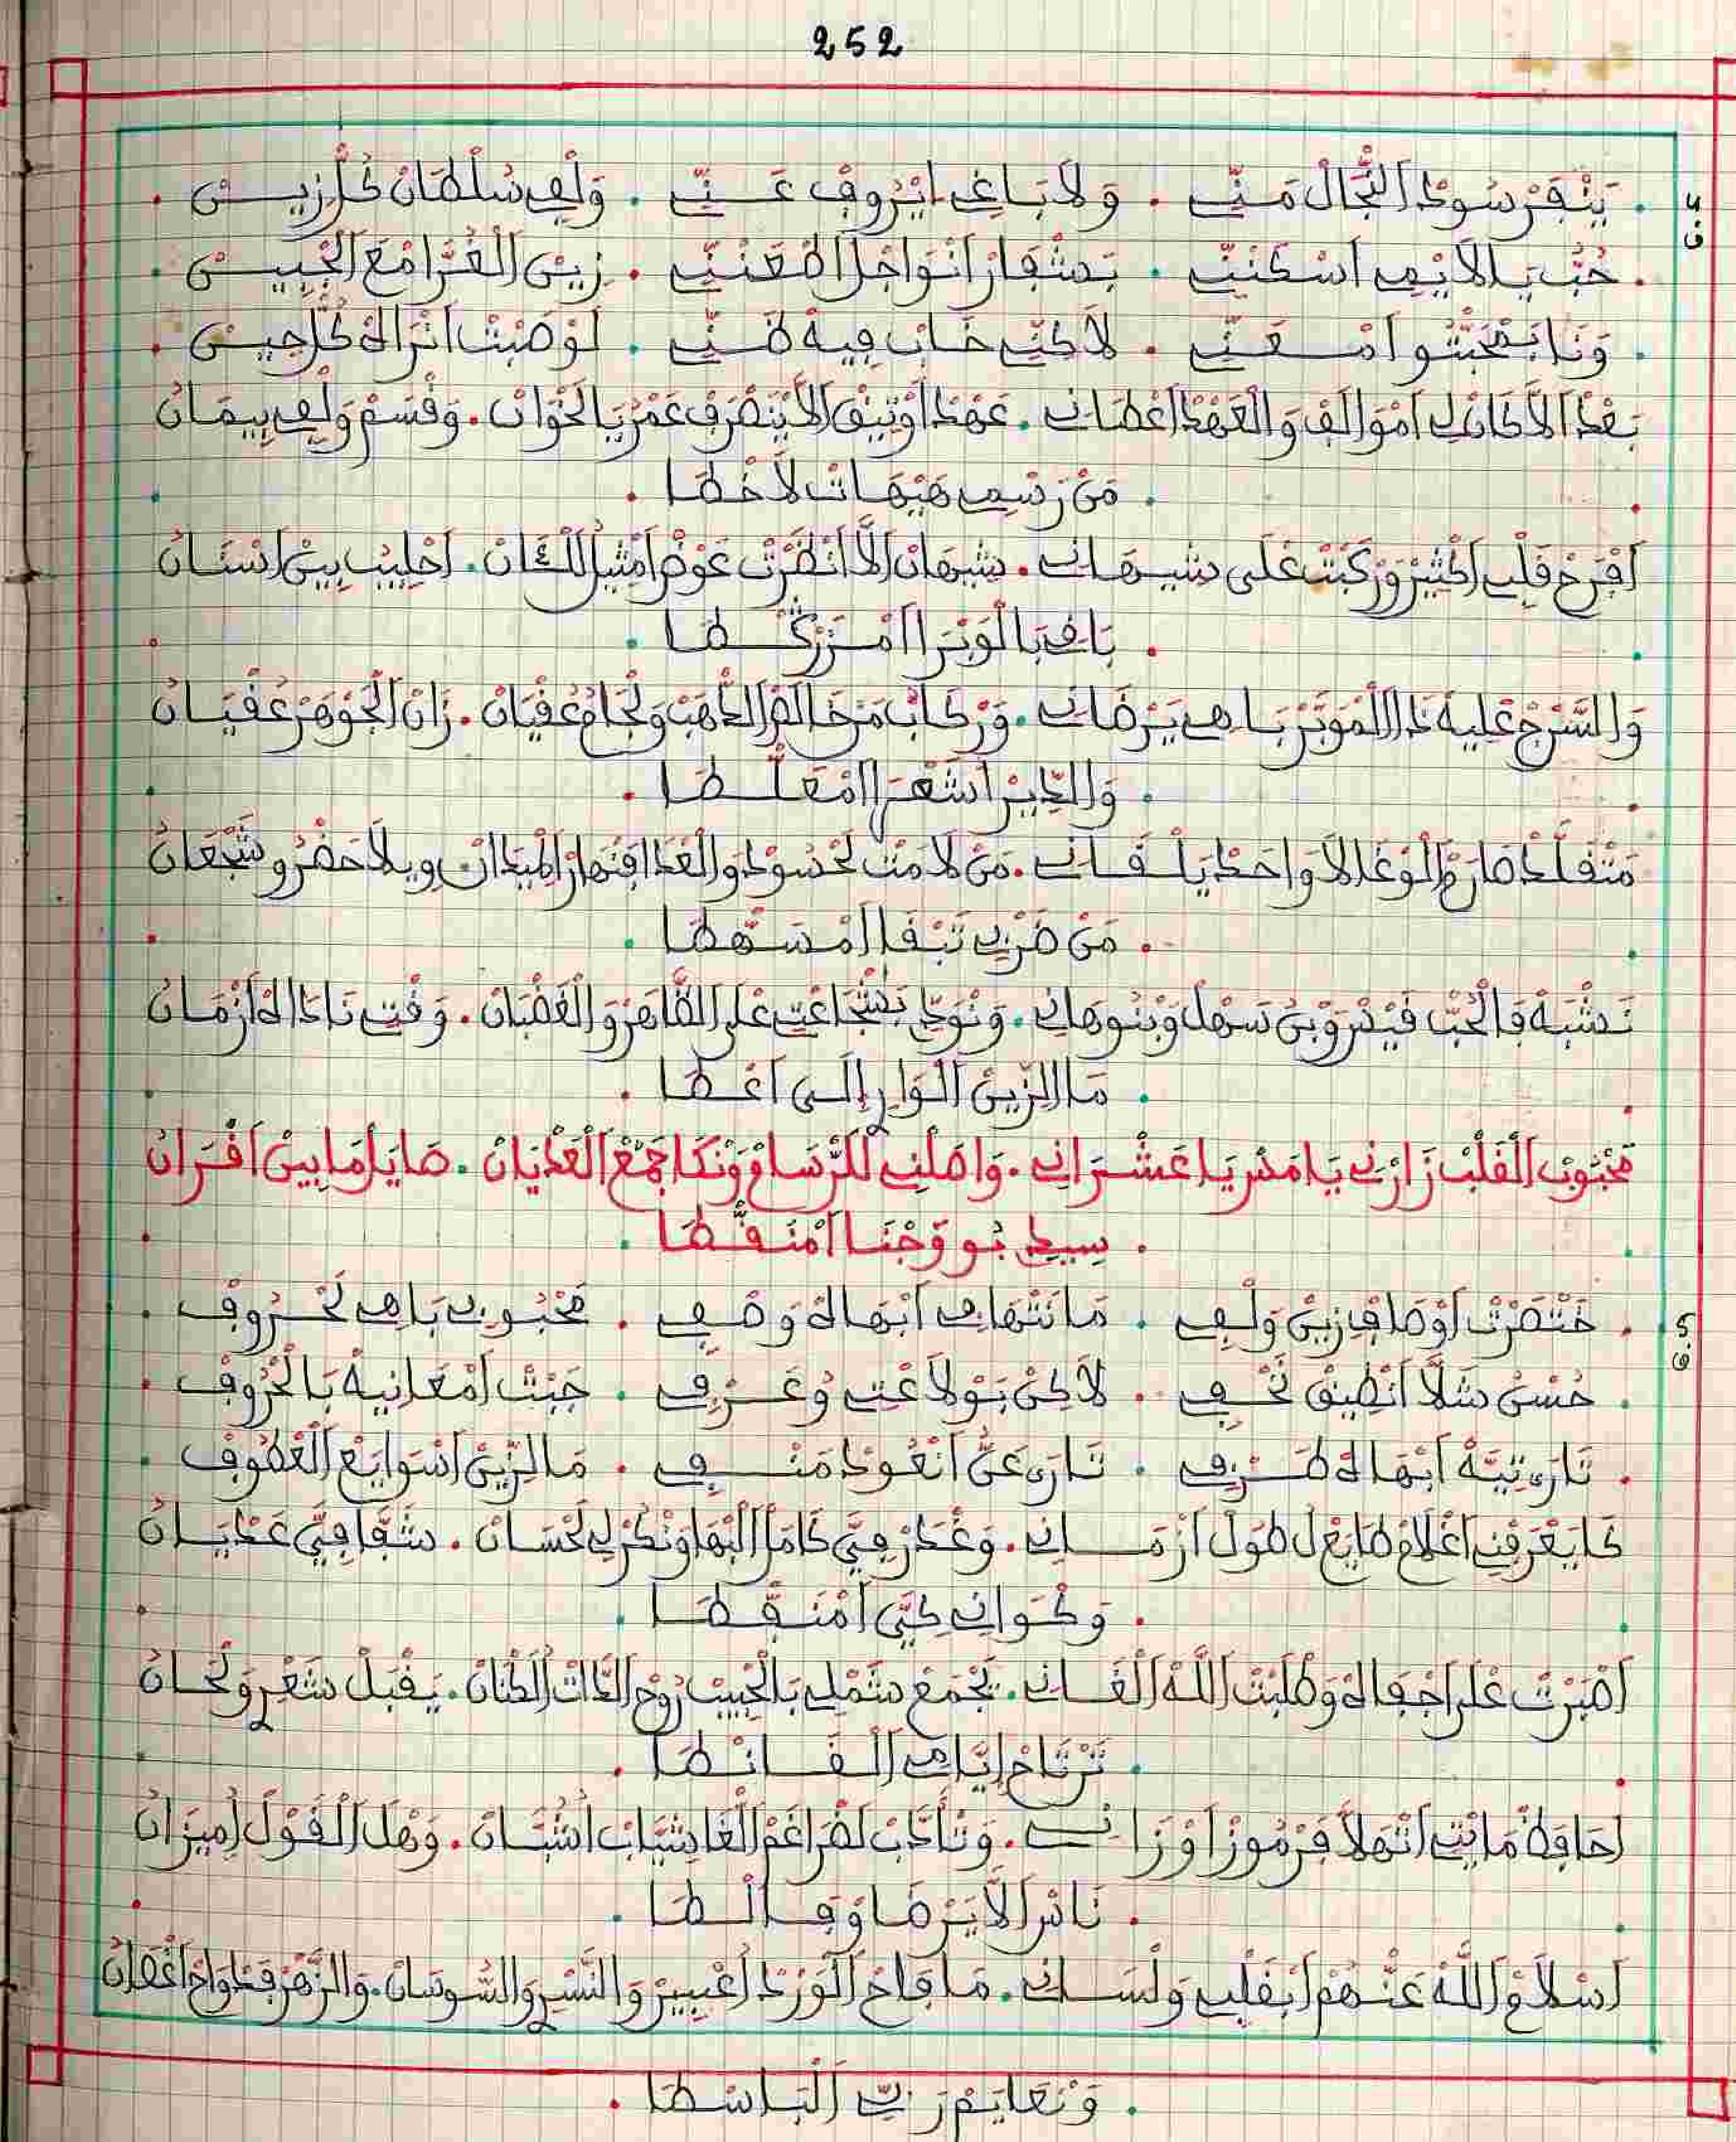 252
ق4
. يَنْفَرْ سُودْ النّْجَالْ مَنِّي . وَلَا بَاغِي ايْرُوفْ عَنِّي . وَلْفِي سُلْطَانْ كُلّْ زِينْ .
. حُبُّ يَا لَايْمِي اسْكَنِّي . بَشْفَارْ انْوَاجْلْ اطْعَنِّي . زِينْ الْغُرَّا مْعَ الْجْبِينْ .
. وَنَا بَمْحَبْتُو امْعَنِّي . لَاكِنِّي خَابْ فِيهْ ظَنِّي . لَوْصَبْتْ انْرَاهْ كُلّْ حِينْ .
بَعْدْ الَّا كَانْ لِي امْوَالَفْ وَالْعَهْدْ اعْطَانِي . عَهْدْ اوْثِيقْ لَا يَنْصْرَفْ عَمْرْ يَا لَخْوَانْ . وَقْسَمْ وَلْفِي بِيمَانْ
. مَنْ رَسْمِي هَيْهَاتْ لَا خْطَا .
افْرَحْ قَلْبِي اكْثِيرْ وَرْكَبْتْ عْلَى شِيهَانِي . شِيهَانْ الَّا انْظَرْتْ عَوْضْ امْثِيلْ اللْكَانْ . احْلِيبْ بِينْ اسْنَانْ
. بَاهِي بَالْوَبْرَا امْزَرْكْطَا .
وَالسَّرْجْ عْلِيهْ دَا الْمُوَبَّرْ بَاهِي يَرْضَانِي . وَرْكَابْ مَنْ خَالَصْ الذّْهَبْ وَلْجَامْ عُقْيَانْ . زَانْ الْجُوهَرْ عُقْيَانْ
. وَالدِّيرْ اشْعَرَا امْعَلّْطَا .
مَتْقَلَّدْ صَارَمْ الْوْغَا لَا وَاحَدْ يَلْقَانِي . مَنْ لَامَتْ لَحْسُودْ وَالْعْدَا فَنْهَارْ الْمِيدَانْ وِيلَا حَضْرُو شَجْعَانْ
. مَنْ ضَرْبِي تَبْقَا امْسَهْطَا .
نَشْبَهْ فَالْحُبّْ قَيْسْ وَبْنْ سَهْلْ وَبْنُو هَانِي . وَنْوَدِّي بَشْجَاعْتِي عْلَى الظَّاهَرْ وَالْغَضْبَانْ . وَقْتِي نَادَاهْ ازْمَانْ
. مَالْزِينْ الْوَارِ الَى اعْطَا .
مَحْبُوبْ الْقَلْبْ زَارْنِي يَامَسْ يَا عَشْرَانِي . وَاصَلْنِي لَلَرْسَامْ وَنْكَا جَمْعْ الْعَدْيَانْ . صَايَلْ مَا بِينْ اقْرَانْ
. سِيدِي بُو وَجْنَا امْنَقّْطَا .
ق5
. خَتْصَرْتْ اوْصَافْ زِينْ وَلْفِي . مَا نَتْهَاهِي ابْهَاهْ وَصْفِي . مَحْبُوبِي بَاهِي لَحْرُوفْ .
. حُسْنْ شَلَّا انْطِيقْ نَحْفِي . لَاكِنْ بَوْلَاعْتِي وُعَرْفِي . جَبْتْ امْعَانِيهْ بَالْحْرُوفْ .
. تَارَة تِيَّهْ ابْهَاهْ طَرْفِي . تَارَة عَنُّ انْعُودْ مَنْفِي . مَالْزِّينْ اسْوَايَعْ الْعْطُوفْ .
كَا يَعْرَفْنِي اغْلَامْ طَايَعْ لْ طُولْ ازْمَانِي . وَغْدَرْ فِيَّ كَامَلْ الْبْهَا وَنْكَرْ لِي لَحْسَانْ . شَفَّا فِيَّ عَدْيَانْ
. وَكْوَانِي كِيَّ امْنَقّْطَا .
اصْبَرْتْ عْلَى اجْفَاهْ وَطْلَبْتْ اللَّهْ الْغَانِي . يَجْمَعْ شَمْلِي بَالْحْبِيبْ رُوحْ الذَّاتْ الْكْنَانْ . يَقْبَلْ شَعْرِ وَلْحَانْ
. تَرْتَاحْ ايَّامِي الْقَانْطَا .
احَافَظْ مَا بْتِي اتْهَلَّا فَرْمُوزْ اوْزَانِي . وَتْأَدَّبْ لَضْرَاغَمْ الْغَاشْيَابْ اشُبَّانْ . وَهْلْ الْقَوْلْ امِيزَانْ
. نَاسْ لَا يَرْضَاوْ فَالْطَا .
اسْلَامْ اللَّهْ عَنْهُمْ ابْقَلْبِي وَلْسَانِي . مَا فَاحْ الْوَرْدْ اعْبِيرْ وَالنَّسْرِ وَالسُّوسَانْ . وَالزّْهَرْ فَدْوَاحْ اغْصَانْ
. وَنْعَايَمْ رَبِّي الْبَاسْطَا .